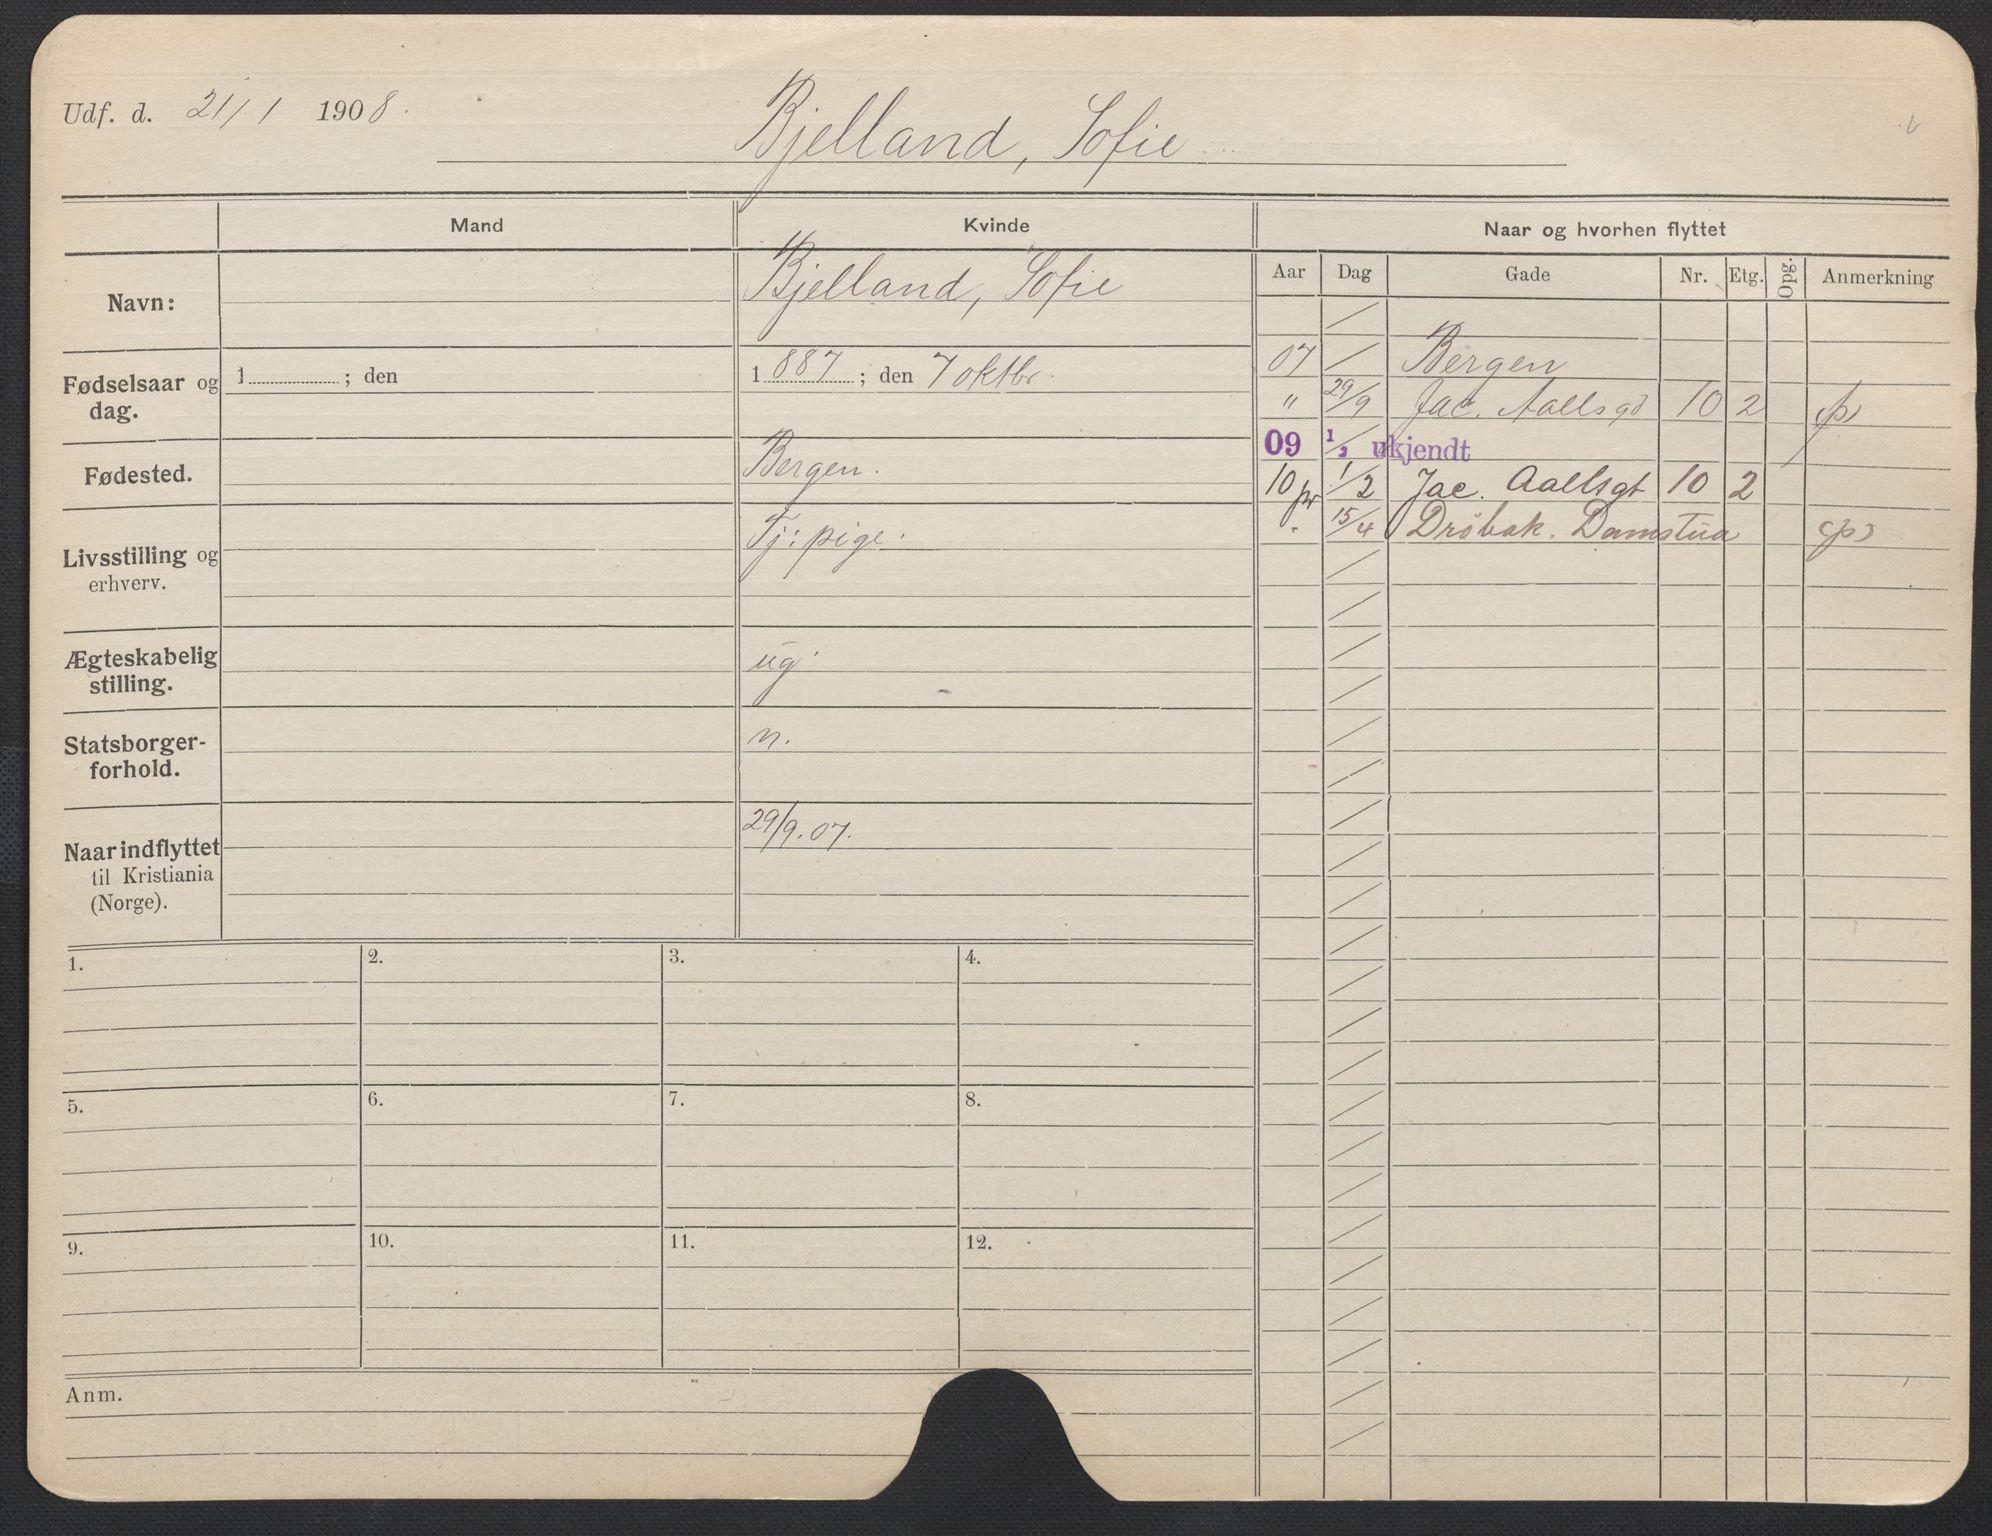 Udf. d. 21/1 1908.
Bjelland, Sofie
Mand
Kvinde
Naar og hvorhen flyttet
Aar Dag Gade Nr. Etg. Opg. Anmerkning
Navn:
Bjelland, Sofie
Fødselsaar og
dag.
1 ; den
1887 ; den 7 oktbr.
Fødested.
Bergen.
Livsstilling og
erhverv.
Tj: pige.
Ægteskabelig
stilling.
ug
Statsborger-
forhold.
n.
Naar indflyttet
til Kristiania
(Norge).
29/9. 07.
07 / Bergen
" 29/9 Jac. Aallsgd 10 2 (p)
09 1/2 ukjendt
10 pr 1/2 Jac. Aallsgt 10 2
" 15/4 Drøbak. Damstua (p)
1. 2. 3. 4.
5. 6. 7. 8.
9. 10. 11. 12.
Anm.